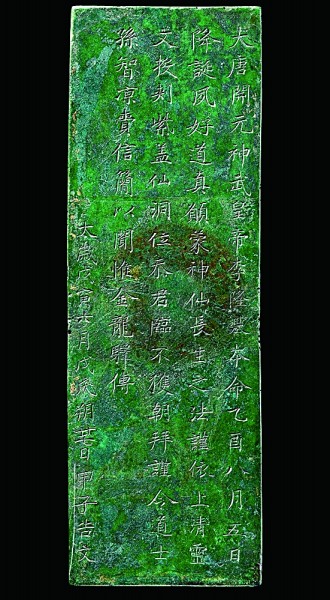 大唐開元神武皇帝李隆基本命乙酉八月五日
降誕夙好道真願蒙神仙長生之法謹依上清靈
文投刺紫盖仙洞位忝君臨不獲朝拜謹令道士
孫智凉賫信簡以聞惟金龍驛傳
太歲戊寅七月戊戌朔廿七日甲子告文